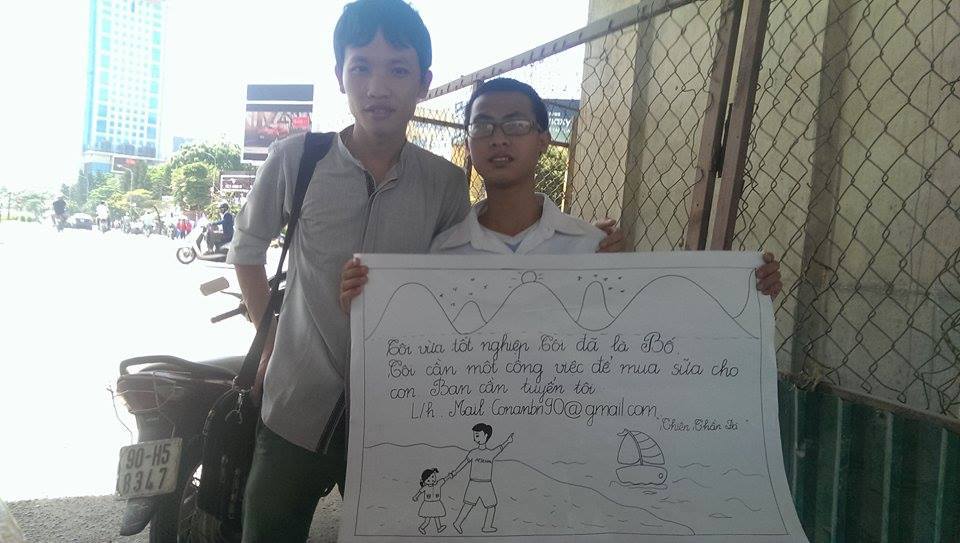 Tôi vừa tốt nghiệp Tôi đã là Bố.
Tôi cần một công việc để mua sữa cho
con Bạn cần tuyển tôi.
L/h. Mail Conanbn90@gmail.com
"Thiên Thần Đá"
90-H5
8347